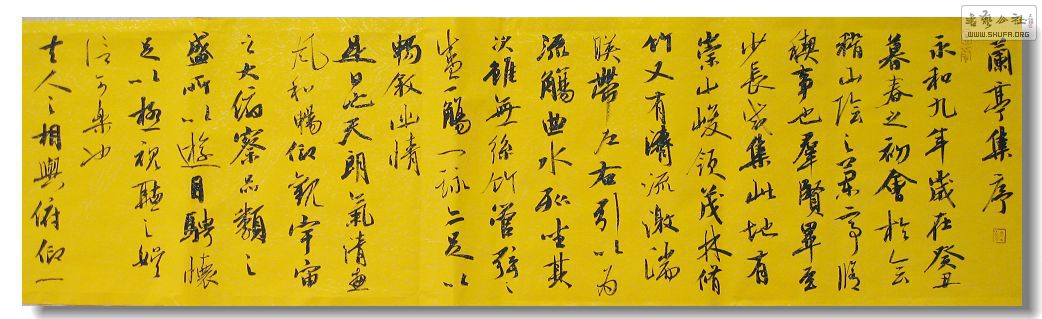 蘭亭集序
永和九年歲在癸丑
暮春之初會於會
稽山陰之蘭亭脩
禊事也羣賢畢至
少長咸集此地有
崇山峻領茂林脩
竹又有清流激湍
暎帶左右引以為
流觴曲水列坐其
次雖無絲竹管弦之
盛一觴一詠亦足以
暢敘幽情
是日也天朗氣清惠
風和暢仰觀宇宙
之大俯察品類之
盛所以遊目騁懷
足以極視聽之娛
信可樂也
夫人之相與俯仰一
书艺公社
WWW.SHUFA.ORG